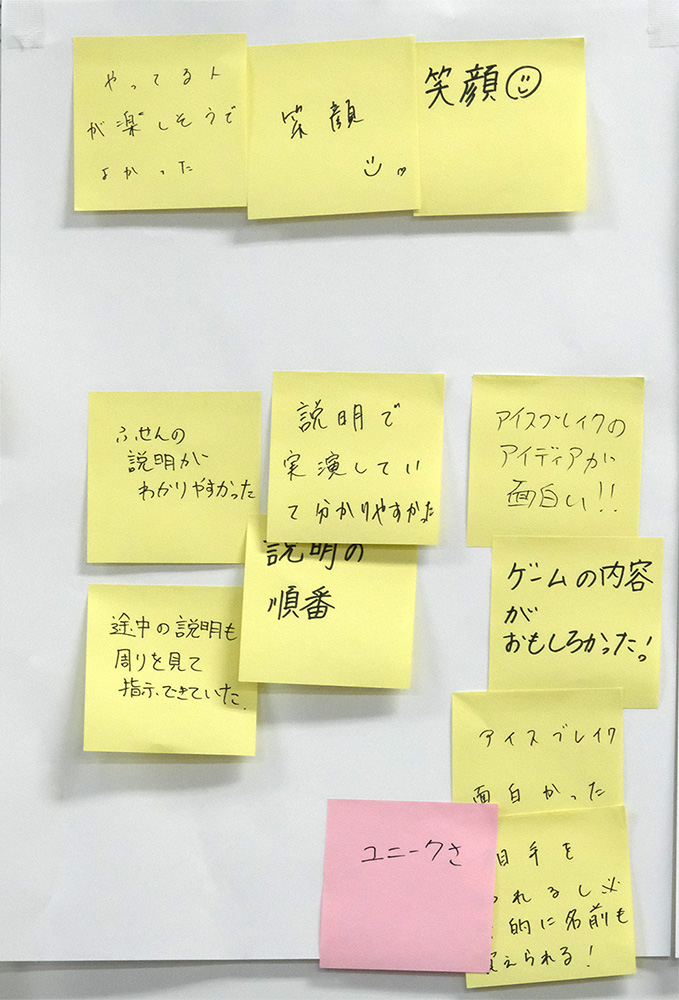 やってる人
が楽しそうで
よかった
笑顔
笑顔
ふせんの
説明が
わかりやすかった
説明で
実演してい
て分かりやすかった
説明の
順番
途中の説明も
周りを見て
指示できていた.
アイスブレイクの
アイディアが
面白い!!
ゲームの内容
が
おもしろかった!
アイスブレイク
面白かった
ユニークさ
手を
れるし必
的に名前も
えられる!